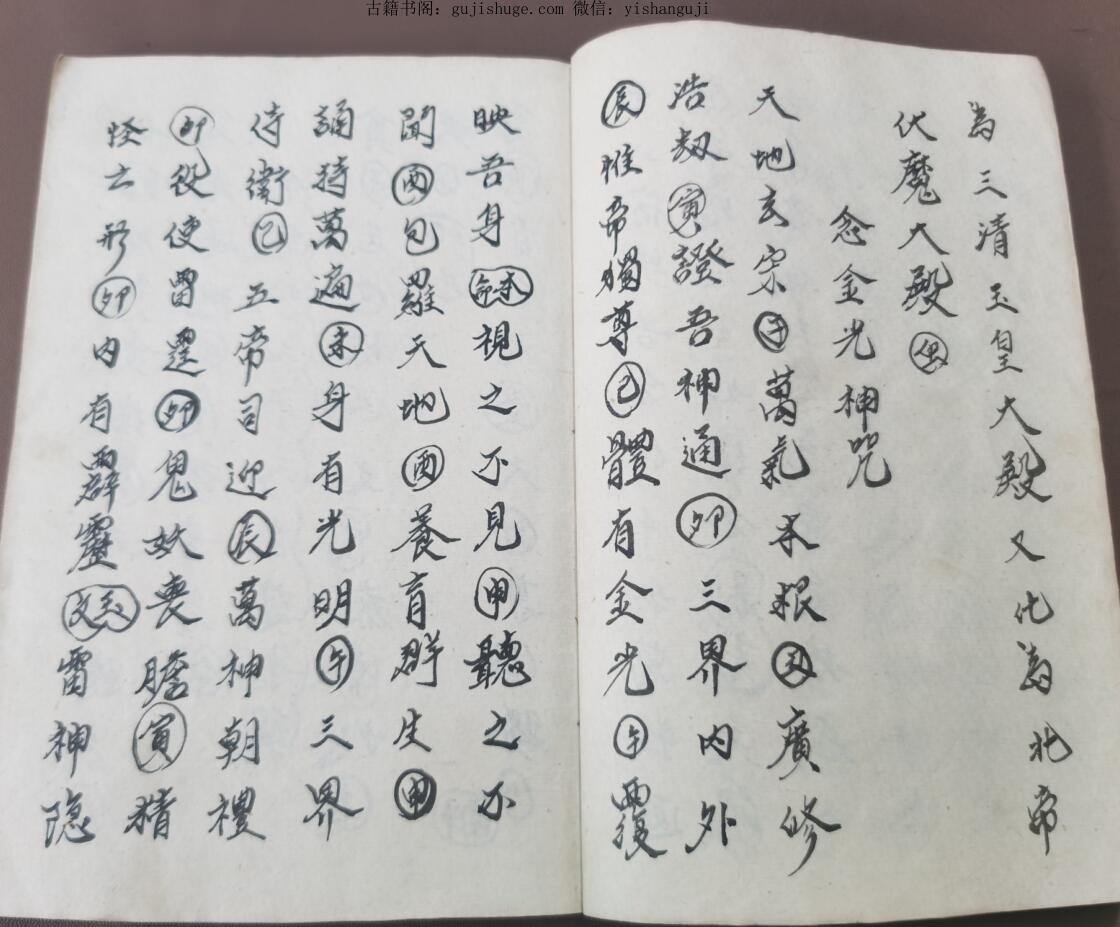 古籍书阁：gujishuge.com 微信：yishanguji
為三清玉皇大殿又化為北帝
伏魔大殿
念金光神咒
天地玄宗子萬氣本根丑廣修
浩劫寅證吾神通卯三界內外
辰惟帝獨尊己體有金光午覆
映吾身本命視之不見申聽之不
聞酉包羅天地酉養育群生申
誦持萬遍未身有光明午三界
侍衛己五帝司迎辰萬神朝禮
卯役使雷霆卯鬼妖喪膽寅精
怪亡形卯內有霹靂玉文雷神隐